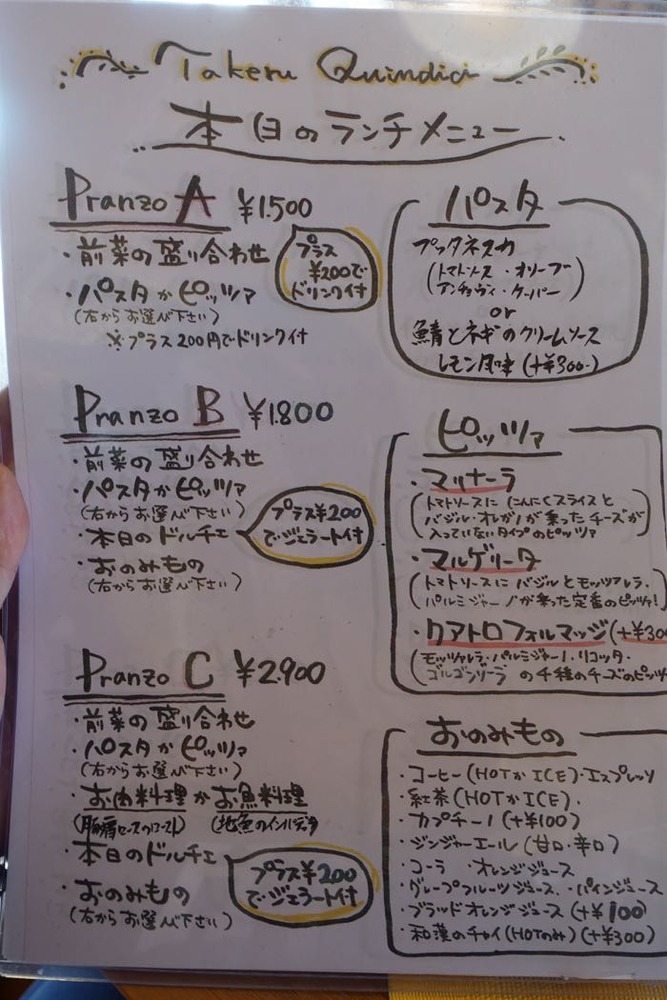 Takeru Quindici
本日のランチメニュー
Pranzo A ¥1.500
・前菜の盛り合わせ
・パスタかピッツァ
(右からお選び下さい)
※プラス200円でドリンク付
プラス
¥200で
ドリンク付
Pranzo B ¥1.800
・前菜の盛り合わせ
・パスタかピッツァ
(右からお選び下さい)
・本日のドルチェ
・おのみもの
(右からお選び下さい)
プラス¥200
で・ジェラート付
Pranzo C ¥2.900
・前菜の盛り合わせ
・パスタかピッツァ
(右からお選び下さい)
・お肉料理かお魚料理
(地魚のインパデッラ
・本日のドルチェ
・おのみもの
(右からお選び下さい)
プラス¥200
で・ジェラート付
パスタ
プッタネスカ
(トマトソース・オリーブ
アンチョヴィ・ケーパー)
or
鯖とネギのクリームソース
レモン風味(+¥300-)
ピッツァ
・マリナーラ
(トマトソースに にんにくスライスと
バジル・オレガノが乗ったチーズが
入っていないタイプのピッツァ
・マルゲリータ
(トマトソースに バジルとモッツァレラ・
パルミジャーノが乗った定番のピッツァ!)
・クアトロフォルマッジ(+¥300
(モッツァレラ・パルミジャーノ・リコッタ・
ゴルゴンゾーラ の4種のチーズのピッツァ
おのみもの
・コーヒー(HOTかICE)・エスプレッソ
・紅茶(HOTかICE).
・カプチーノ(+¥100)
・ジンジャーエール(甘口・辛口)
・コーラ ・オレンジジュース
・グレープフルーツジュース・パインジュース
・ブラッドオレンジジュース(+¥100)
・和漢のチャイ(HOTのみ)(+¥300)